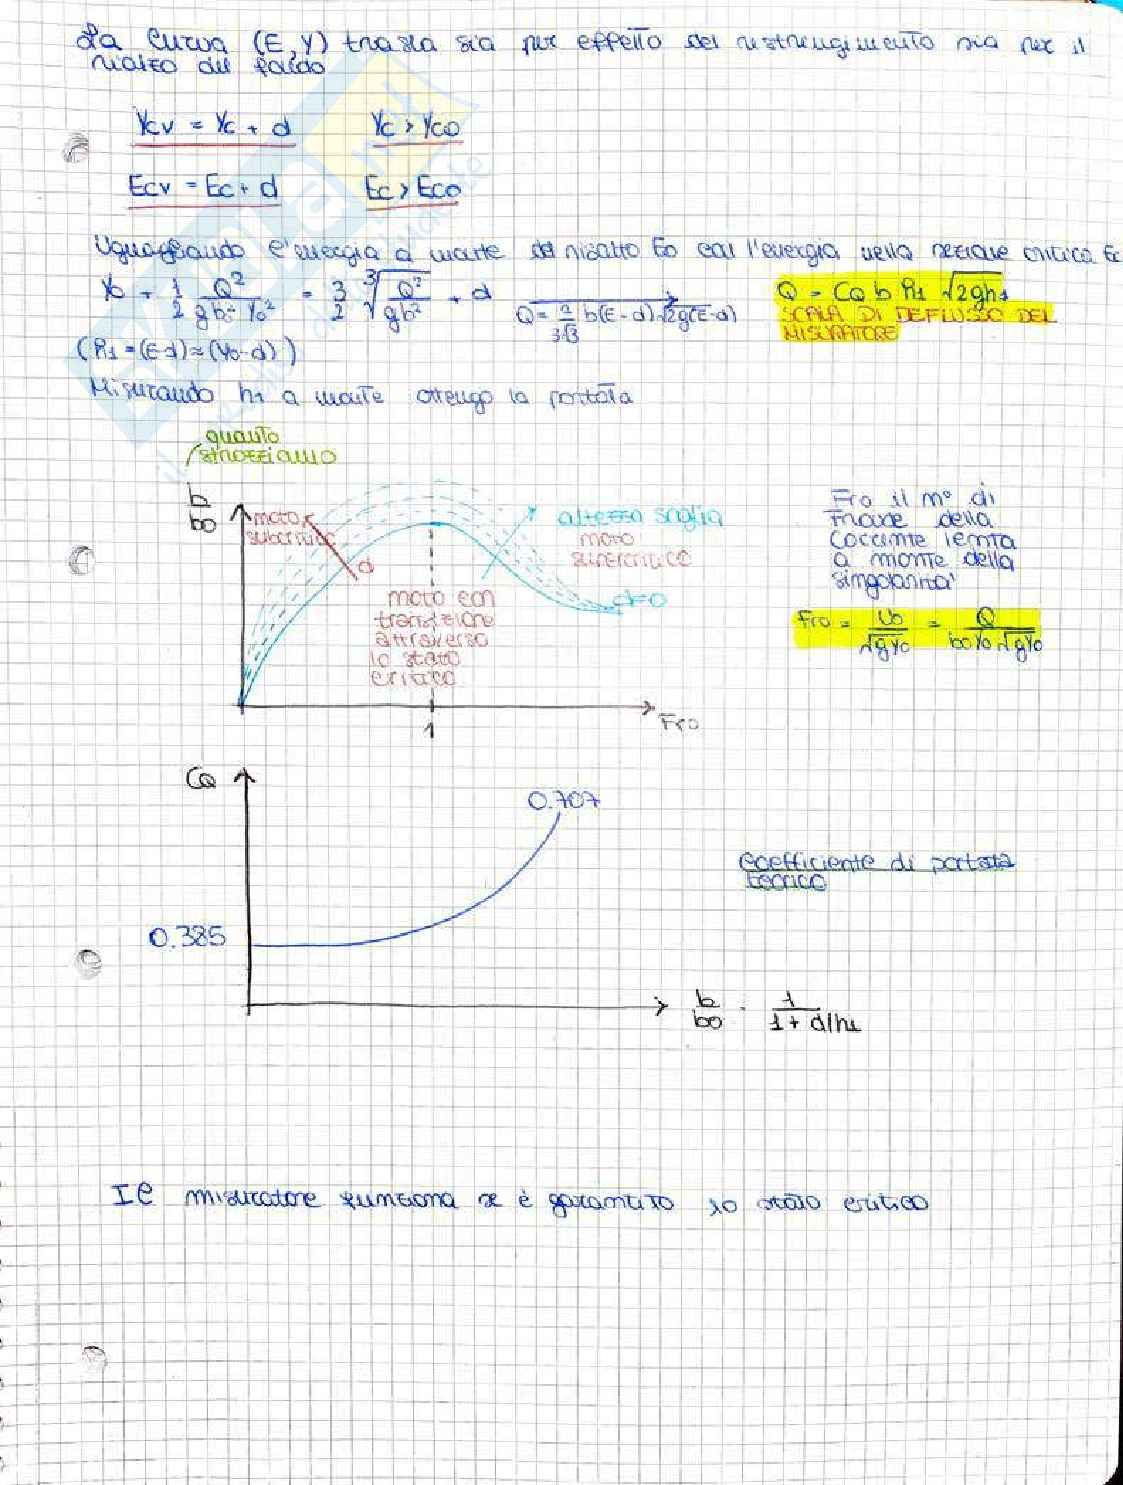 La curva (E, Y) trasla sia per effetto del restringimento sia per il
rialzo del fondo
Ycv = Yc + d Yc > Yco
Ecv = Ec + d Ec > Eco
Uguagliando l'energia a monte del risalto Eo con l'energia nella sezione critica Ec
Yo + 1/2 Q²/(g bo² Yo²) = 3/2 ∛(Q²/(gb²)) + d Q = 2/(3√3) b(E-d)√2g(E-d) Q = CQ b h1 √2gh1
SCALA DI DEFLUSSO DEL
MISURATORE
(h1 = (E-d) ≈ (Yo-d))
Misurando h1 a monte ottengo la portata
quanto
strozziamo
b/bo
moto
subcritico
d
altezza soglia
moto
supercritico
d=0
moto con
transizione
attraverso
lo stato
critico
1
Fro
Fro il n° di
Froude della
corrente lenta
a monte della
singolarità
Fro = Uo/√gYo = Q/(boYo√gYo)
CQ
0.707
0.385
Coefficiente di portata
teorico
b/bo · 1/(1 + d/h1)
Il misuratore funziona se è garantito lo stato critico